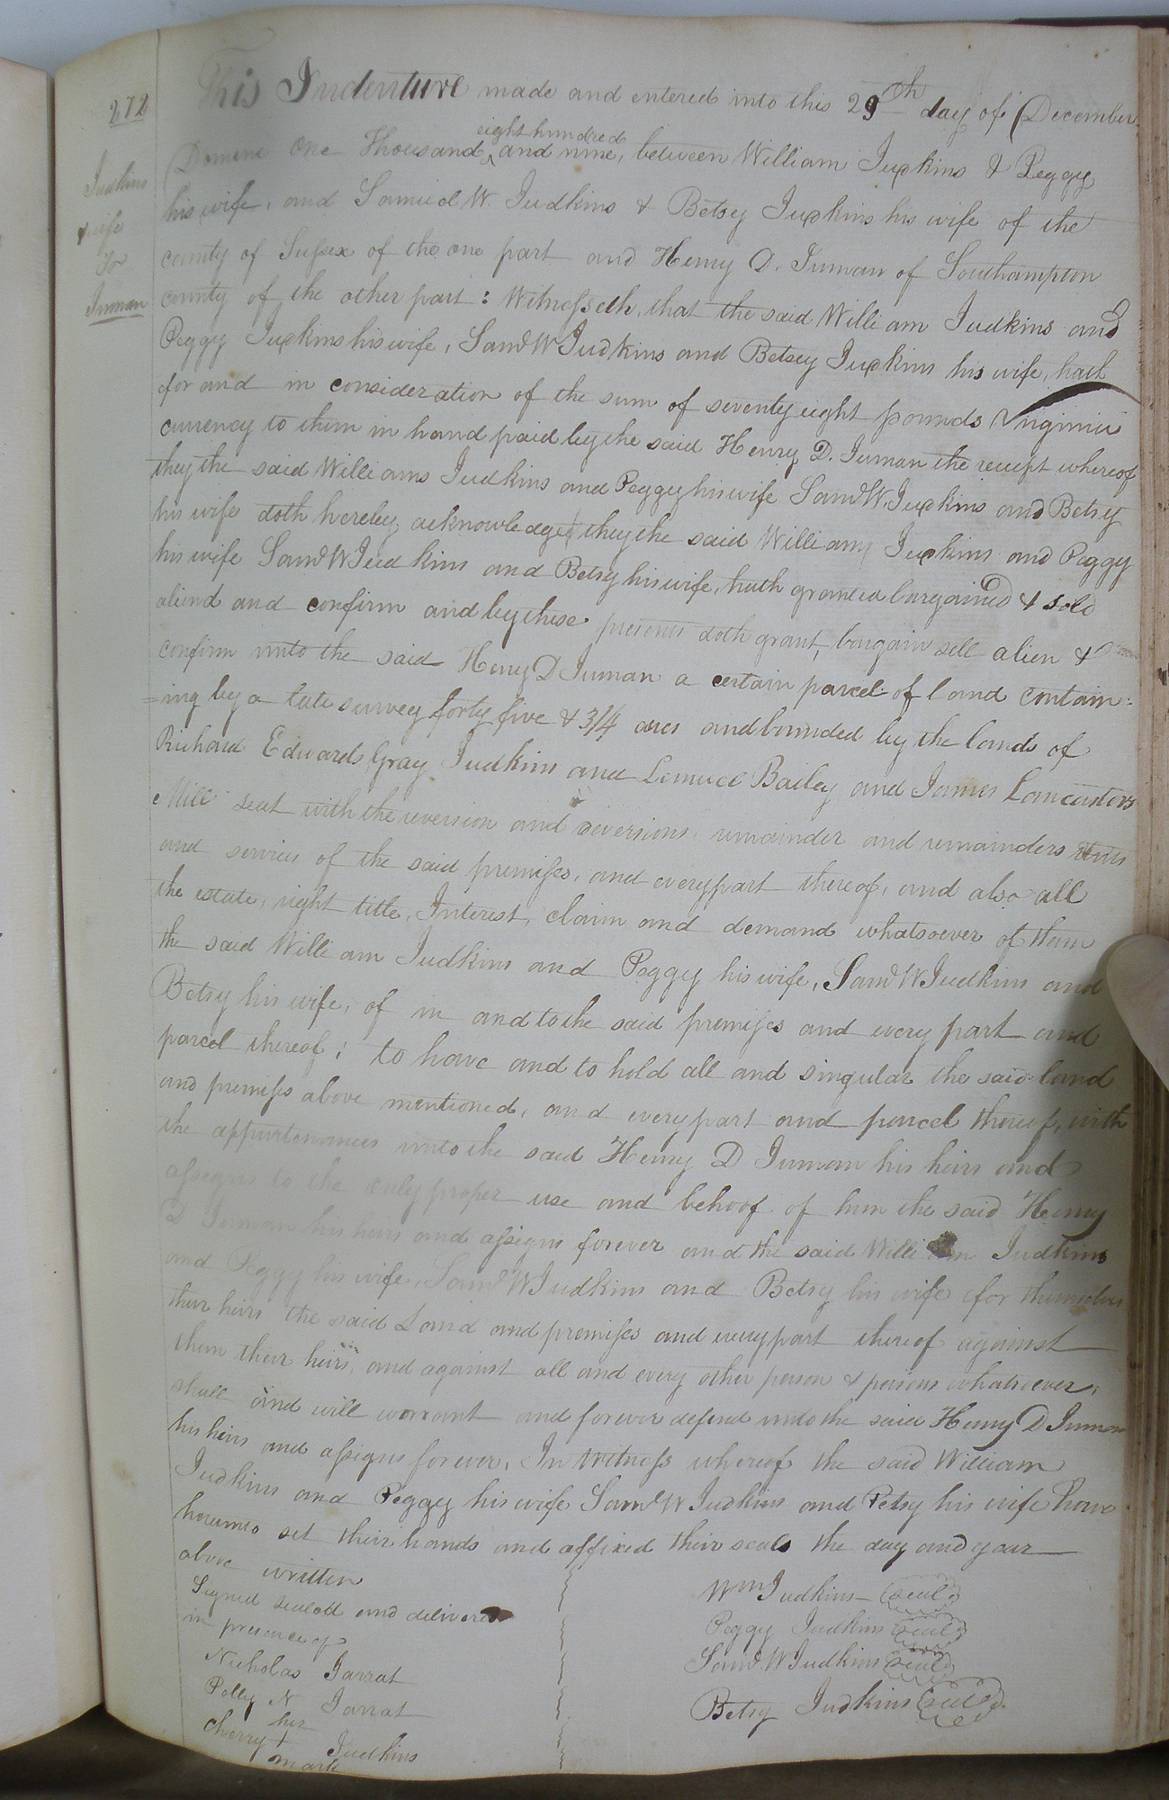 272
Judkins
& wife
To
Inman
This Indenture made and entered into this 29th day of December
Domini One Thousand eight hundred and nine, between William Judkins & Peggy
his wife, and Samuel W. Judkins & Betsy Judkins his wife of the
county of Sussex of the one part and Henry D. Inman of Southampton
county of the other part: Witnesseth, that the said William Judkins and
Peggy Judkins his wife, Saml W Judkins and Betsey Judkins his wife, hath
for and in consideration of the sum of seventy eight pounds Virginia
currency to them in hand paid by the said Henry D. Inman the receipt whereof
they the said Williams Judkins and Peggy his wife Saml W Judkins and Betsy
his wife doth hereby acknowledge, they the said William Judkins and Peggy
his wife Saml W Judkins and Betsy his wife, hath granted bargained & sold
aliend and confirm and by these presents doth grant, bargain sell alien &
confirm unto the said Henry D Inman a certain parcel of land contain=
=ing by a late survey forty five & 3/4 acres and bounded by the lands of
Richard Edwards, Gray Judkins and Lemuel Bailey and James Lancasters
Mill seat with the reversion and reversions, remainder and remainders
and services of the said premisses, and every part thereof, and also all
the estate, right title, Interest, claim and demand whatsoever of them
the said William Judkins and Peggy his wife, Saml W Judkins and
Betsy his wife, of in and to the said premises and every part and
parcel thereof; to have and to hold all and singular the said land
and premises above mentioned, and every part and parcel thereof, with
the appurtenances unto the said Henry D Inman his heirs and
assigns to the only proper use and behoof of him the said Henry
D Inman his heirs and assigns forever and the said William Judkins
and Peggy his wife, Saml W Judkins and Betsy his wife for themselves
their heirs the said Land and premises and every part thereof against
them their heirs, and against all and every other person & persons whatsoever,
shall and will warrant and forever defend unto the said Henry D Inman
his heirs and assigns forever, In Witness whereof the said William
Judkins and Peggy his wife Saml W Judkins and Petsy his wife have
hereunto set their hands and affixed their seals the day and year
above written
Signed sealed and delivered
in presence of
Nicholas Jarrat
Polly N Jarrat
her
Cherry + Judkins
mark
Wm Judkins seal
Peggy Judkins seal
Saml W Judkins seal
Betsy Judkins seal